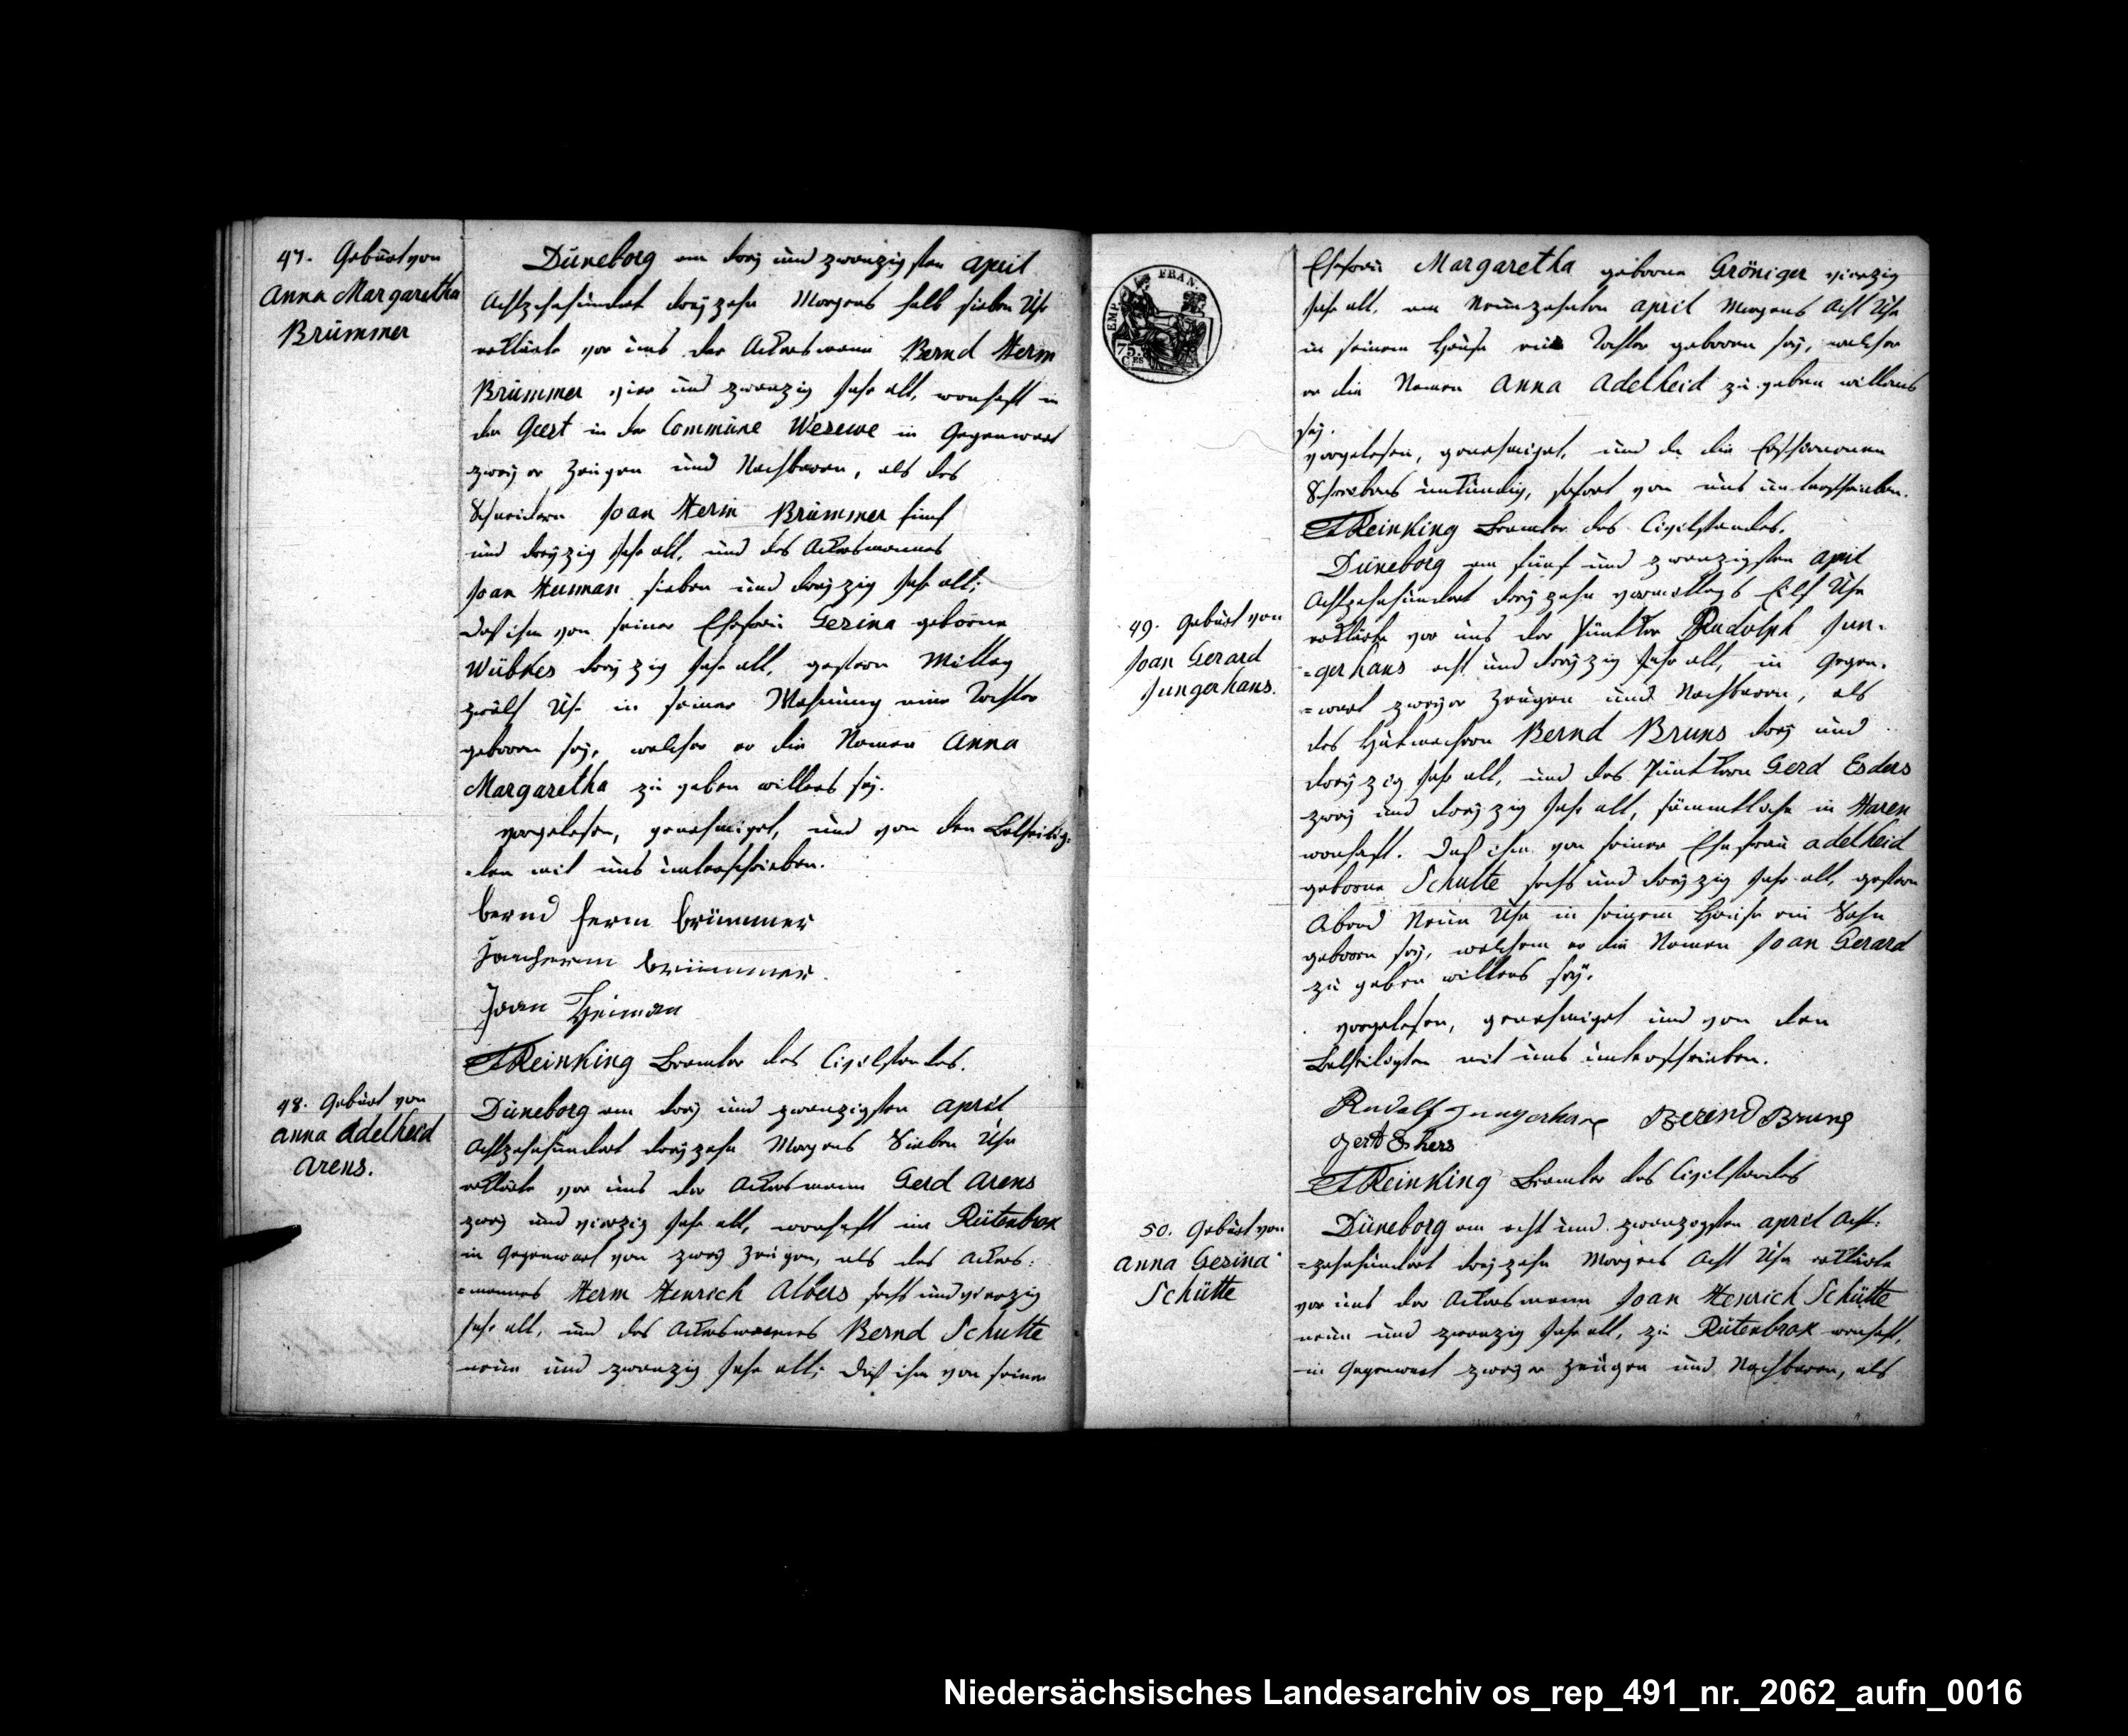 47. Gebürt von
Anna Margaretha
Brümmer
Düneborg am dreÿ und zwanzigsten april
Achtzehnhündert dreÿzehn Morgens halb sieben Uhr
erklärte vor uns der Ackersmann Bernd Herm
Brümmer vier und zwanzig Jahr alt, wonhaft in
der Geest in der Commüne Wesewe in Gegenwart
zweÿer Zeugen und Nachbaren, als des
Schneidern Joan Herm Brümmer fünf
und dreÿzig Jahr alt, und des Ackersmannes
Joan Heiman sieben und dreÿzig Jahr alt;
daß ihm von seiner Ehefraü Gesina geborne
Wübkes dreÿzig Jahr alt, gestern Mittag
zwölf Uhr in seiner Wohnung eine Tochter
geboren seÿ, welcher er die Namen Anna
Margaretha zu geben willens seÿ.
vorgelesen, genehmiget, und von den Betheilig-
=ten mit uns unterschrieben.
bernd herm brümmer
Janherm brümmer.
Joan Heiman
Reinking Beamter des Civilstandes.
48. Gebürt von
anna adelheid
arens.
Düneborg am dreÿ und zwanzigsten april
Achtzehnhündert dreÿzehn Morgens Sieben Uhr
erklärte vor uns der Ackersmann Gerd Arens
zweÿ und vierzig Jahr alt, wonhaft im Rütenbrok
in Gegenwart von zweÿ Zeügen, als des Ackers-
=mannes Herm Henrich Albers sechs und vierzig
Jahr alt, und des Ackersmannes Bernd Schutte
neün und zwanzig Jahr alt; daß ihm von seiner
EMP. FRAN.
75.
CES
Ehefraü Margaretha geborne Gröniger vierzig
Jahr alt, am Neünzehnten april Morgens Acht Uhr
in seinem Haüse eine Tochter geboren seÿ, welcher
er die Namen Anna Adelheid zu geben willens
seÿ.
vorgelesen, genehmiget, und da die Erschienenen
Schreibens unkündig, sofort von uns unterschrieben.
Reinking Beamter des Civilstandes.
49. Gebürt von
Joan Gerard
Jungerhans.
Düneborg am fünf und zwanzigsten april
Achtzehnhündert dreÿzehn vormittags Eilf Uhr
erklärte vor uns der Püntker Rudolph Jun-
=gerhans acht und dreÿzig Jahr alt, in Gegen-
=wart zweÿer Zeügen und Nachbaren, als
des Hütmachern Bernd Bruns dreÿ und
dreÿzig Jahr alt, und des Püntkern Gerd Esders
zweÿ und dreÿzig Jahr alt, sämmtliche in Haren
wonhaft. Daß ihm von seiner Ehefraü adelheid
geborne Schulte sechs und dreÿzig Jahr alt, gestern
Abend Neün Uhr in seinem Haüse ein Sohn
geboren seÿ, welchem er die Namen Joan Gerard
zu geben willens seÿ.
vorgelesen, genehmiget und von den
Betheiligten mit uns unterschrieben.
Rudolf Jungerhans Berend Bruns
Reinking Beamter des Civilstandes
50. Gebürt von
anna Gesina
Schütte
Düneborg am acht und zwanzigsten april Acht-
=zehnhündert dreÿzehn Morgens Acht Uhr erklärte
vor uns der Ackersmann Joan Henrich Schütte
neün und zwanzig Jahr alt, zu Rütenbrok wonhaft,
in Gegenwart zweÿer Zeügen und Nachbaren, als
Niedersächsisches Landesarchiv os_rep_491_nr._2062_aufn_0016